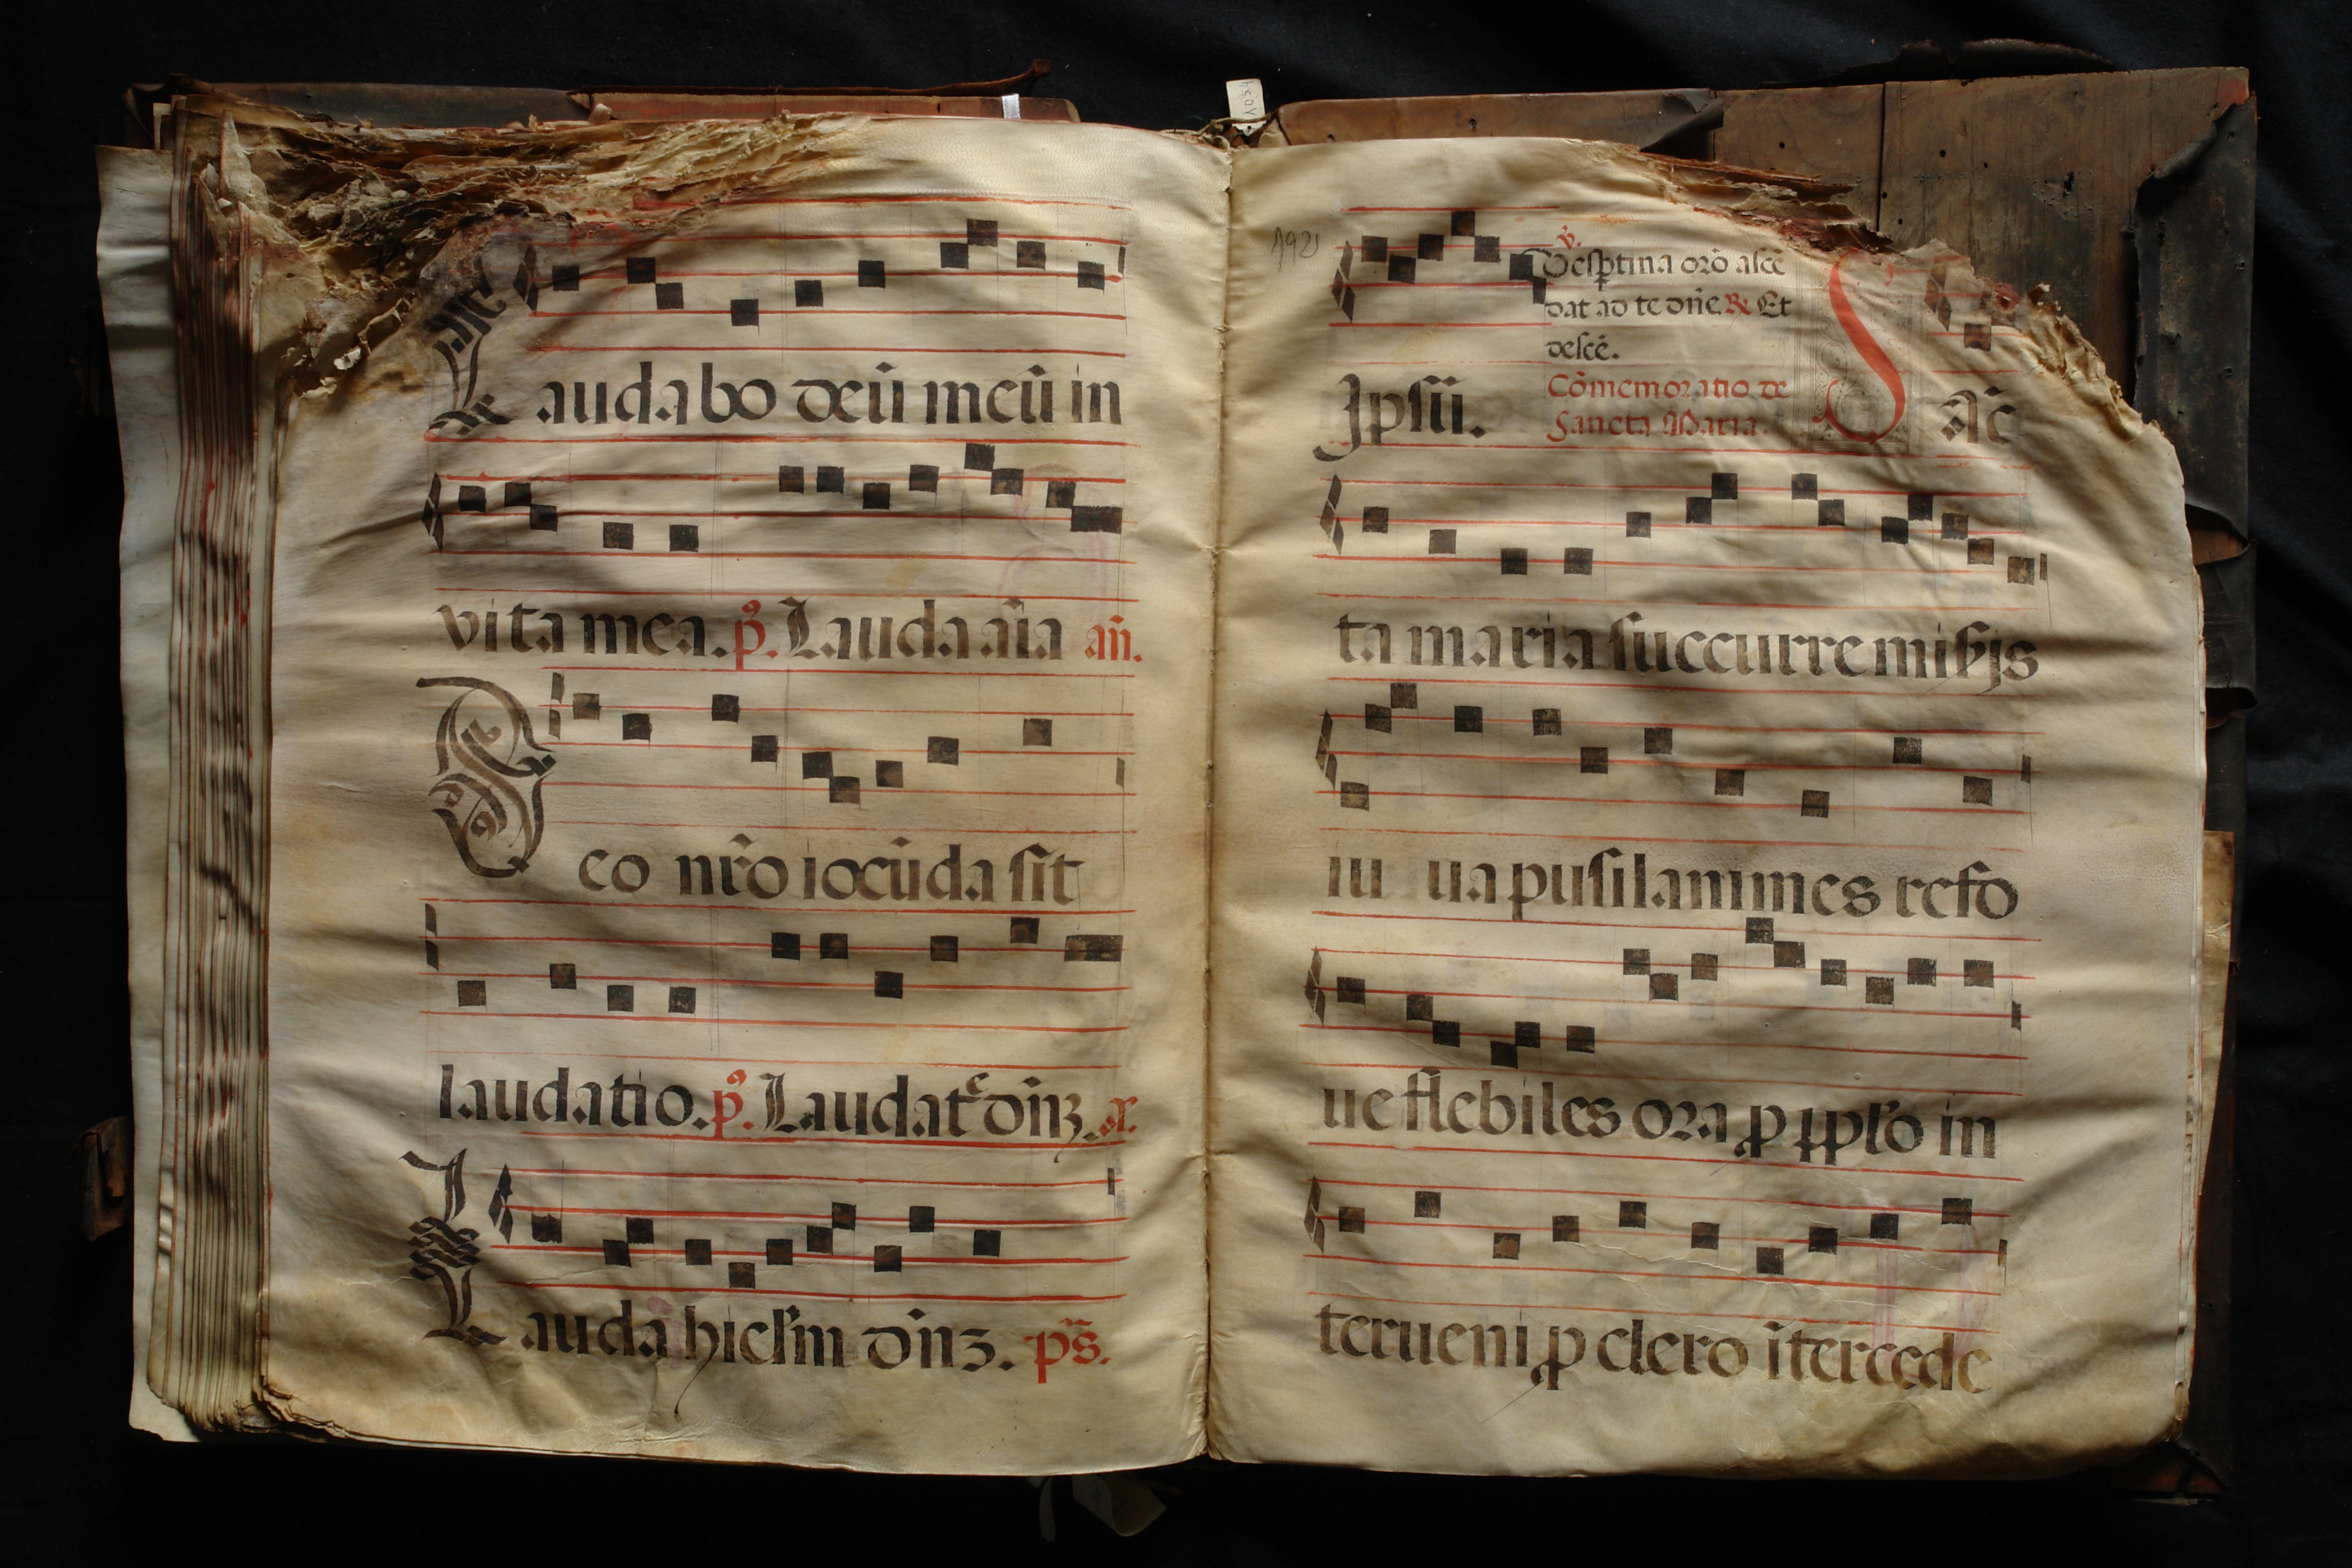 Laudabo deū meū in
vita mea. p̄⁹. Lauda aīa añ.
Deo nr̄o iocūda sit
laudatio. p̄⁹. Laudatᵉ dn̄ꝫ. añ.
Lauda hierl̄m dn̄ꝫ. ps̄.
192
Ipsū.
v̄.
Vesꝑtina orō ascē
dat ad te dn̄e. ℟ Et
descē.
Cōmemoratio de
Sancta Maria.
SAc̄
ta maria succurre misẽjs
iu ua pusilanimes refo
ue flebiles ora ꝓ ppl̄o in
terueni ꝓ clero ītercede